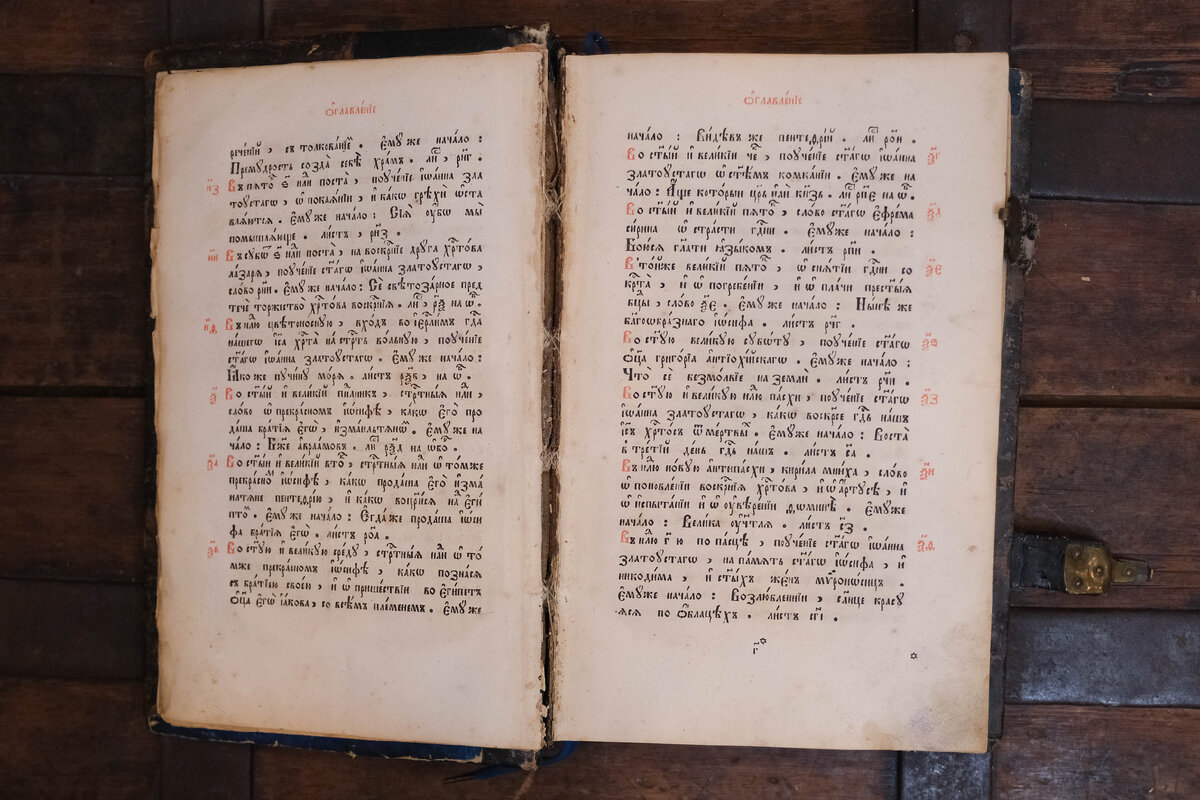 Ѻ҆главле́нїе
рече́нїй , съ толкова́нїемъ . Е҆му́же нача́ло :
Премꙋ́дрость созда̀ себѣ̀ хра́мъ . ли́ст , рн҃г .
н҃з Въ пѧто́къ , ѕ҃ нл҃и поста̀ , поꙋче́нїе і҆ѡа́нна зла
тоꙋстагѡ , ѡ҆ покаѧ́нїи , и҆ ка́кѡ грѣхѝ ѡ҆ста
влѧ́ютсѧ . Е҆мꙋ́же нача́ло : Сїѧ̀ ᲂу҆́бѡ мы̀
помышлѧ́юще . ли́стъ , рн҃з .
н҃и Въ сꙋбѡ́ ѕ҃ нл҃и поста̀ , на воскр҃нїе дрꙋ́га хр҃то́ва
ла́зарѧ , поꙋче́нїе ст҃а́гѡ і҆ѡа́нна златоꙋстагѡ ,
сло́во рн҃и . Е҆мꙋ́же нача́ло : Сѐ свѣтоза́рное пред
течѐ торжество̀ хр҃то́ва воскр҃нїѧ . ли́ст , рѯ҃ на ѡ҆б .
н҃ѳ Въ нл҃ю цвѣтоно́снꙋю , вхо́дъ во і҆ер҃ли́мъ гд҃а
на́шегѡ і҆с҃а хр҃та̀ на стр҃ть во́льнꙋю , поꙋче́нїе
ст҃а́гѡ і҆ѡа́нна златоꙋстагѡ . Е҆мꙋ́же нача́ло :
Ꙗ҆́коже пꙋчи́нꙋ мо́рѧ . ли́стъ рѯ҃в , на ѡ҆б .
ѯ҃ Во ст҃ы́й и҆ вели́кїй пн҃лникъ , стр҃тны́ѧ нл҃и ,
сло́во ѡ҆ прекра́сномъ і҆ѡ́сифѣ , ка́кѡ є҆го̀ про
да́ша бра́тїѧ є҆гѡ̀ , и҆змаильтѧ́нѡм . Е҆мꙋ́же на
ча́ло : Бж҃е а҆враа́мовъ . ли́ст рѯ҃д на ѡ҆бо́ .
ѯ҃а Во ст҃ы́й и҆ вели́кїй вто́ , стр҃тны́ѧ нл҃и ѡ҆ то́мже
прекра́сном і҆ѡ́сифѣ , ка́кѡ прода́ша є҆го̀ и҆зма
илтѧне пентефрі́ю , и҆ ка́кѡ воцр҃и́сѧ на є҆гѵ́
птом . Е҆мꙋ́же нача́ло : Е҆гда́же прода́ша і҆ѡ́си
фа бра́тїѧ є҆гѡ̀ . ли́стъ ро҃а .
ѯ҃в Во ст҃ꙋ́ю и҆ вели́кꙋю сре́дꙋ , стр҃тны́ѧ нл҃и ѡ҆ то́
мже прекра́сномъ і҆ѡ́сифѣ , ка́кѡ позна́сѧ
съ бра́тїею свое́ю , и҆ ѡ҆ прише́ствїи во є҆гѵ́петъ
ѻ҆ц҃а̀ є҆гѡ̀ і҆а́кова , со всѣ́мъ пле́менемъ . Е҆мꙋ́же
Ѻ҆главле́нїе
нача́ло : Ви́дѣвъ же пентефрі́й . ли́ст ро҃и .
Во ст҃ы́й и҆ вели́кїи че́ , поꙋче́нїе ст҃а́гѡ і҆ѡа́нна ѯ҃г
златоꙋстагѡ ѡ҆ ст҃ѣ́мъ комка́нїи . Е҆мꙋ́же на
ча́ло : А҆́ще кото́рыи цр҃ь и҆лѝ кн҃зь . ли́ст рп҃е на ѡ҆б .
Во ст҃ы́й и҆ вели́кїй пѧто́ , сло́во ст҃а́гѡ є҆фре́ма ѯ҃д
си́рина ѡ҆ стра́сти гд҃ни . Е҆мꙋ́же нача́ло :
Бою́сѧ гл҃ати ꙗ҆зы́комъ . ли́стъ рп҃и .
В то́йже вели́кїй пѧто́ , ѡ҆ снѧ́тїи гд҃ни со ѯ҃е
кр҃та̀ , и҆ ѡ҆ погребе́нїи , и҆ ѡ҆ пла́чи прест҃ы́ѧ
бц҃ы , сло́во ѯ҃е . Е҆мꙋ́же нача́ло : Ны́нѣ же
бл҃гоѡбра́знаго і҆ѡ́сифа . ли́стъ рч҃г .
Во ст҃ꙋ́ю вели́кꙋю сꙋббѡ́тꙋ , поꙋче́нїе ст҃а́гѡ ѯ҃ѕ
ѻ҆ц҃а̀ григо́рїа а҆нтїохі́йскагѡ . Е҆мꙋ́же нача́ло :
Что̀ сѐ безмо́лвїе на землѝ . ли́стъ рч҃и .
Во ст҃ꙋ́ю и҆ вели́кꙋю нл҃ю па́схи , поꙋче́нїе ст҃а́гѡ ѯ҃з
і҆ѡа́нна златоꙋстагѡ , ка́кѡ воскр҃се гд҃ь на́шъ
і҆с҃ъ хр҃то́съ ѿ ме́ртвых . Е҆мꙋ́же нача́ло : Воста̀
в тре́тїй де́нь гд҃ь на́шъ . ли́стъ с҃а .
Въ нл҃ю но́вꙋю а҆нтипа́схи , кири́ла мни́ха , сло́во ѯ҃и
ѡ҆ поновле́нїи воскр҃нїѧ хр҃то́ва , и҆ ѡ҆ а҆́ртꙋсѣ , и҆
ѡ҆ и҆спыта́нїи и҆ ѡ҆ ᲂу҆вѣре́нїи ѳ҆ѡминѣ̀ . Е҆мꙋ́же
нача́ло : Вели́ка ᲂу҆чт҃лѧ . ли́стъ с҃з .
Въ нл҃ю г҃ю по па́сцѣ , поꙋче́нїе ст҃а́гѡ і҆ѡа́нна ѯ҃ѳ
златоꙋстагѡ , на па́мѧть ст҃а́гѡ і҆ѡ́сифа , и҆
никоди́ма , и҆ ст҃ы́хъ же́нъ мѵроно́сицъ .
Е҆мꙋ́же нача́ло : Возлю́бленнїи , сл҃нце красꙋ́
ѧсѧ по ѻ҆́блацѣхъ . ли́стъ сг҃і .
г҃